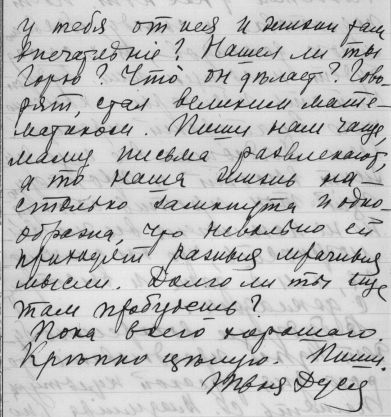 у тебя от нея и жизни там
впечатлѣнiе? Нашел ли ты
Горю? Что он дѣлает? Гово-
рят, стал великим мате-
матиком. Пиши нам чаще,
маму письма развлекают,
а то наша жизнь на-
столько замкнута и одно-
образна, что невольно ей
приходят разныя мрачныя
мысли. Долго ли ты еще
там пробудешь?
Пока всего хорошаго.
Крѣпко цѣлую. Пиши.
Твоя Дуся